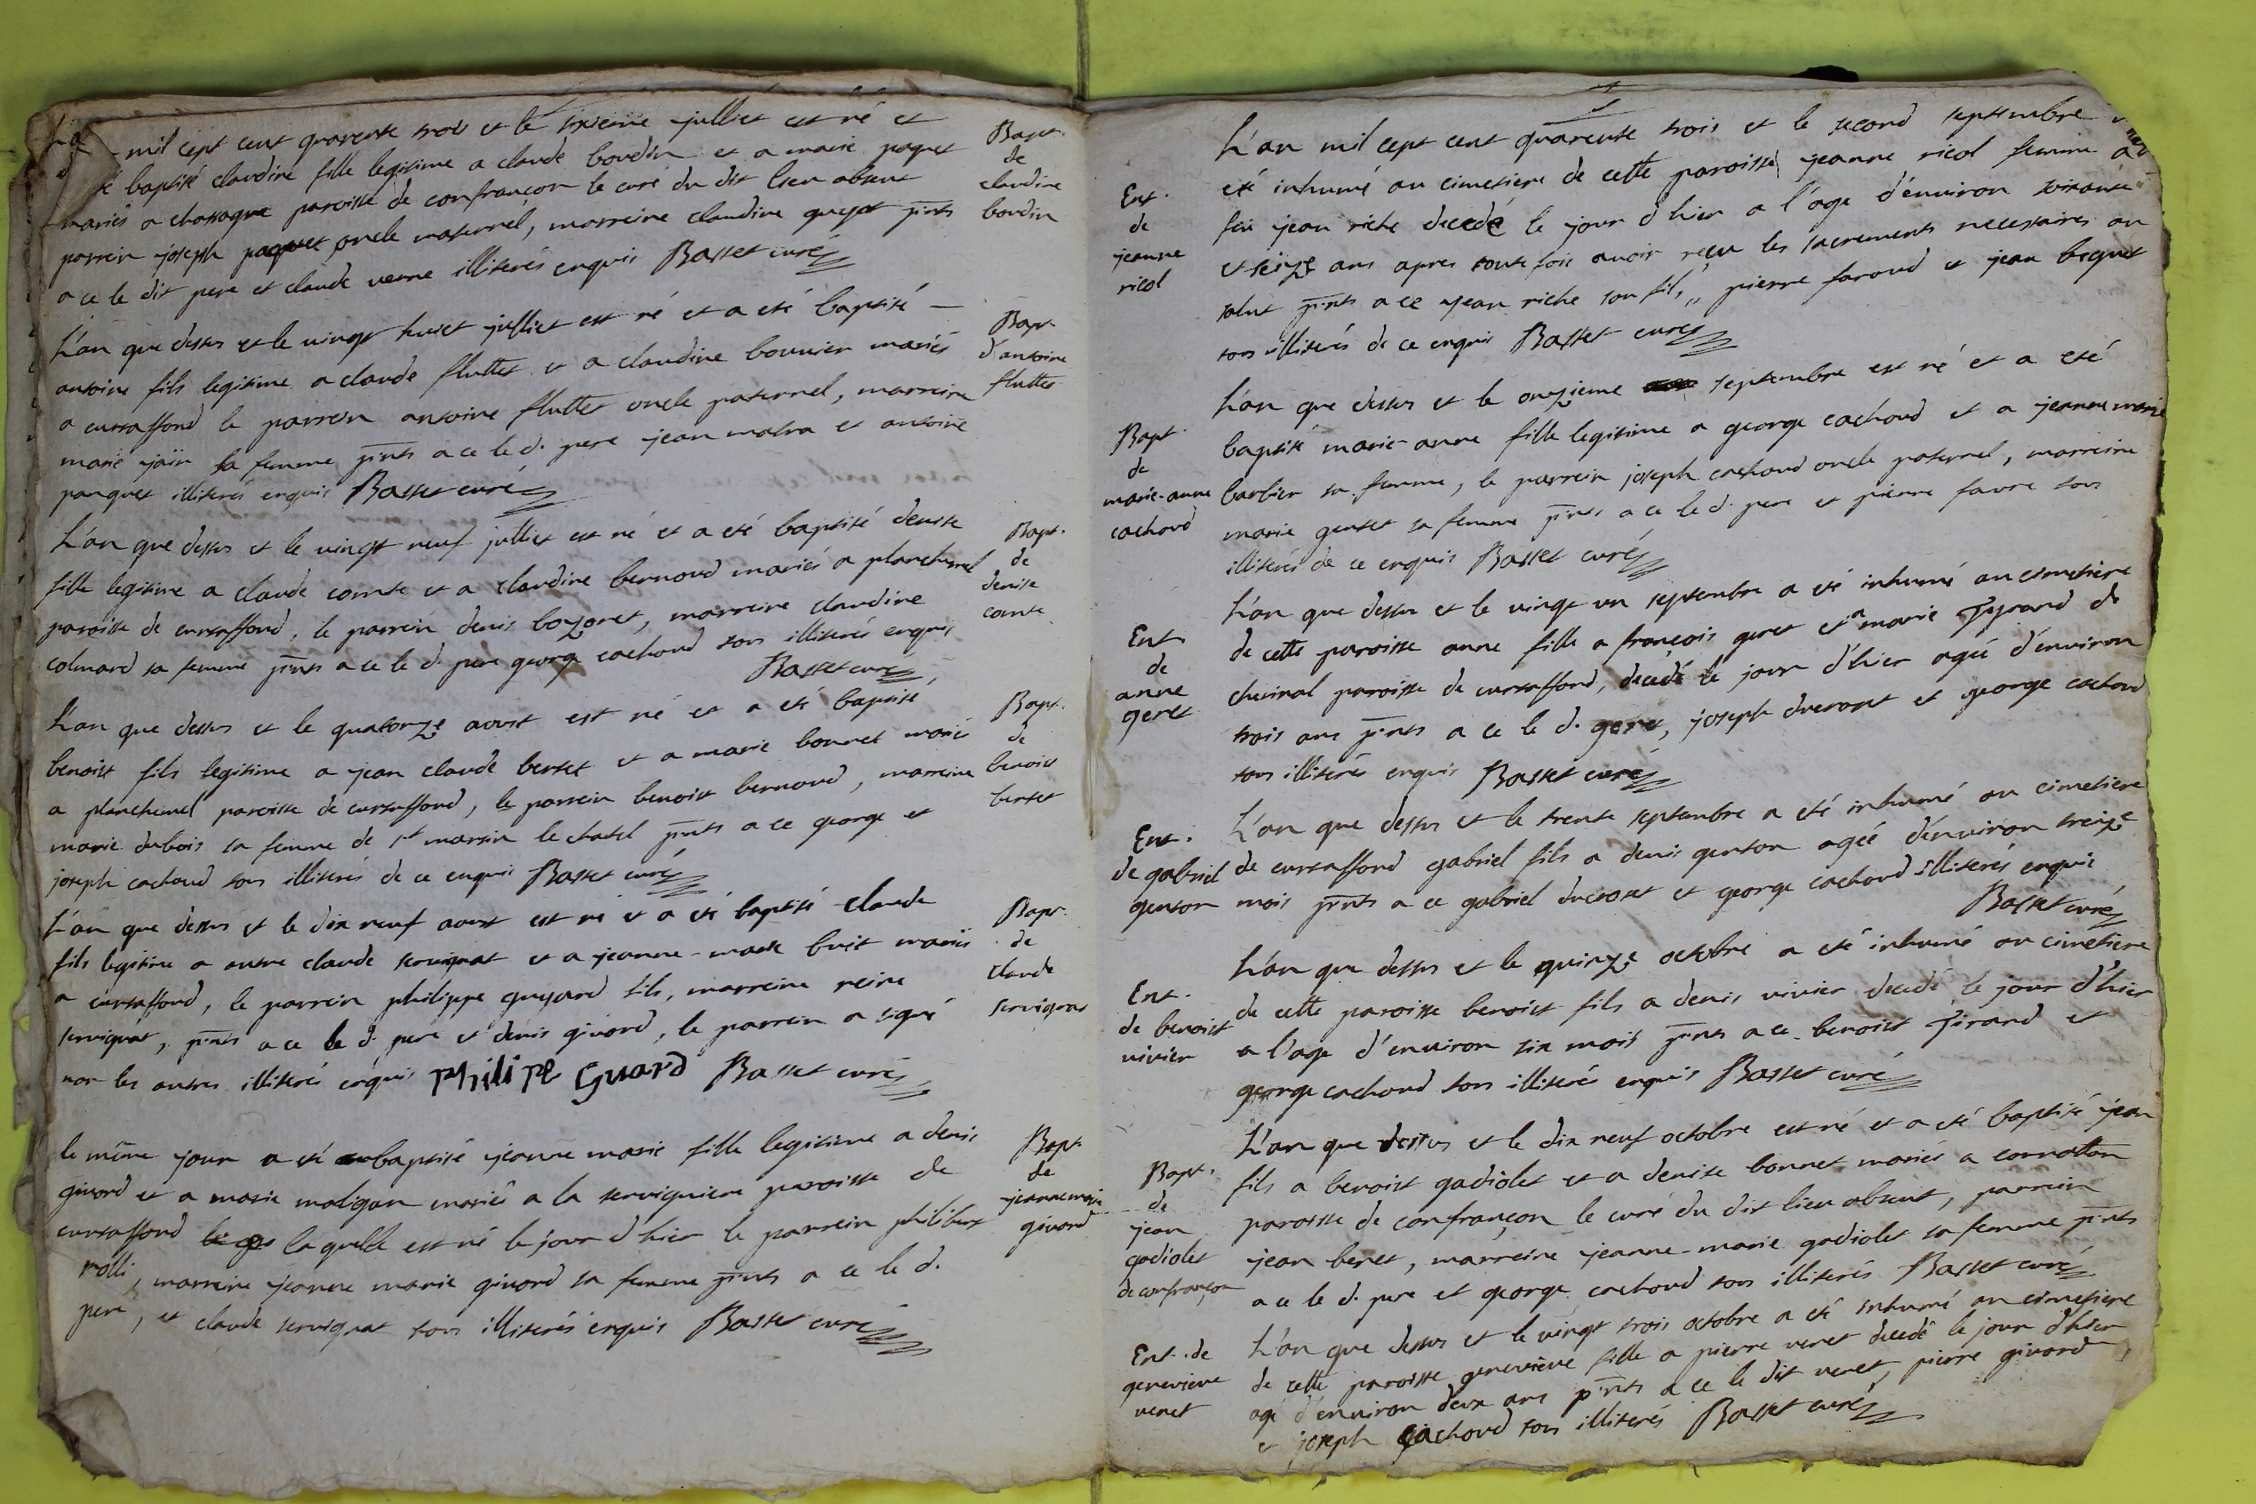 mil cept cent quarente trois et le sixieme julliet est né et
baptisé claudine fille legitime a claude boudin et a marie paquet
mariés a chassagne paroisse de confrançon le curé du dit lieu absent
parrein joseph paquet oncle maternel, marreine claudine guyot p̄nts
a ce le dit pere et claude verne illiterés enquis Basset curé
Bapt.
de
claudine
boudin
L'an que dessus et le vingt huict julliet est né et a eté baptisé
antoine fils legitime a claude fluttet et a claudine bouvier mariés
a curtaffond le parrein antoine fluttet oncle paternel, marreine
marie jain sa femme p̄nts a ce le d. pere jean malra et antoine
panquet illiterés enquis Basset curé
Bapt.
d'antoine
fluttet
L'an que dessus et le vingt neuf julliet est né et a eté baptisé denise
fille legitime a claude comte et a claudine bernoud mariés a planchemel
paroisse de curtaffond, le parrein denis bozonet, marreine claudine
colmard sa femme p̄nts a ce le d. pere george cachoud tous illiterés enquis
Basset curé
Bapt.
de
denise
comte
L'an que dessus et le quatorze aoust est né et a eté baptisé
benoist fils legitime a jean claude bertet et a marie bonnet mariés
a planchemel paroisse de curtaffond, le parrein benoist bernoud, marreine
marie dubois sa femme de st martin le chatel p̄nts a ce george et
joseph cachoud tous illiterés de ce enquis Basset curé
Bapt.
de
benoist
bertet
L'an que dessus et le dix neuf aoust est né et a eté baptisé claude
fils legitime a autre claude servignat et a jeanne-marie buit mariés
a curtaffond, le parrein philippe guyard fils, marreine reine
servignat, p̄nts a ce le d. pere et denis givord, le parrein a signé
non les autres illiterés enquis Philipe Guard Basset curé
Bapt.
de
claude
servignat
le même jour a eté baptisé jeanne marie fille legitime a denis
givord et a marie maligan mariés a la servigniere paroisse de
curtaffond laquelle est né le jour d hier le parrein philibert
rolli, marreine jeanne marie givord sa femme p̄nts a ce le d.
pere, et claude servignat tous illiterés enquis Basset curé
Bapt.
de
jeanne marie
givord
L'an mil cept cent quarente trois et le second septembre
eté inhumé au cimetiere de cette paroisse jeanne ricol femme a
feu jean riche decedé le jour d hier a l'âge d'environ soixante
et seize ans apres toute fois avoir reçu les sacrements necessaires au
salut p̄nts a ce jean riche son fils, pierre faroud et jean bequet
tous illiterés de ce enquis Basset curé
Ent.
de
jeanne
ricol
L'an que dessus et le onzieme septembre est né et a eté
baptisé marie-anne fille legitime a george cachoud et a jeanne marie
barbier sa femme, le parrein joseph cachoud oncle paternel, marreine
marie gentet sa femme p̄nts a ce le d. pere et pierre favre tous
illiterés de ce enquis Basset curé
Bapt.
de
marie-anne
cachoud
L'an que dessus et le vingt un septembre a eté inhumé au cimetiere
de cette paroisse anne fille a françois geret et a marie Tyrand de
cheinal paroisse de curtaffond, decedé le jour d'hier agée d'environ
trois ans p̄nts a ce le d. geret, joseph ducrost et george cachoud
tous illiterés enquis Basset curé
Ent.
de
anne
geret
L'an que dessus et le trente septembre a eté inhumé au cimetiere
de curtaffond gabriel fils a denis genton agée d'environ treize
mois p̄nts a ce gabriel ducrost et george cachoud illiterés enquis
Basset curé
Ent.
de gabriel
genton
L'an que dessus et le quinze octobre a eté inhumé au cimetiere
de cette paroisse benoist fils a denis vivier decedé le jour d'hier
a l'age d'environ six mois p̄nts a ce benoist Tirand et
george cachoud tous illiterés enquis Basset curé
Ent.
de benoist
vivier
L'an que dessus et le dix neuf octobre est né et a eté baptisé jean
fils a benoist gadiolet et a denise bonnet mariés a cornaton
paroisse de confrançon le curé du dit lieu absent, parrein
jean beret, marreine jeanne-marie gadiolet sa femme p̄nts
a ce le d. pere et george cachoud tous illiterés Basset curé
Bapt.
de
jean
gadiolet
de confrançon
L'an que dessus et le vingt trois octobre a eté inhumé au cimetiere
de cette paroisse genevieve fille a pierre veret decedé le jour d'hier
agé d'environ deux ans p̄nts a ce le dit veret, pierre givord
et joseph cachoud tous illiterés Basset curé
Ent. de
genevieve
veret